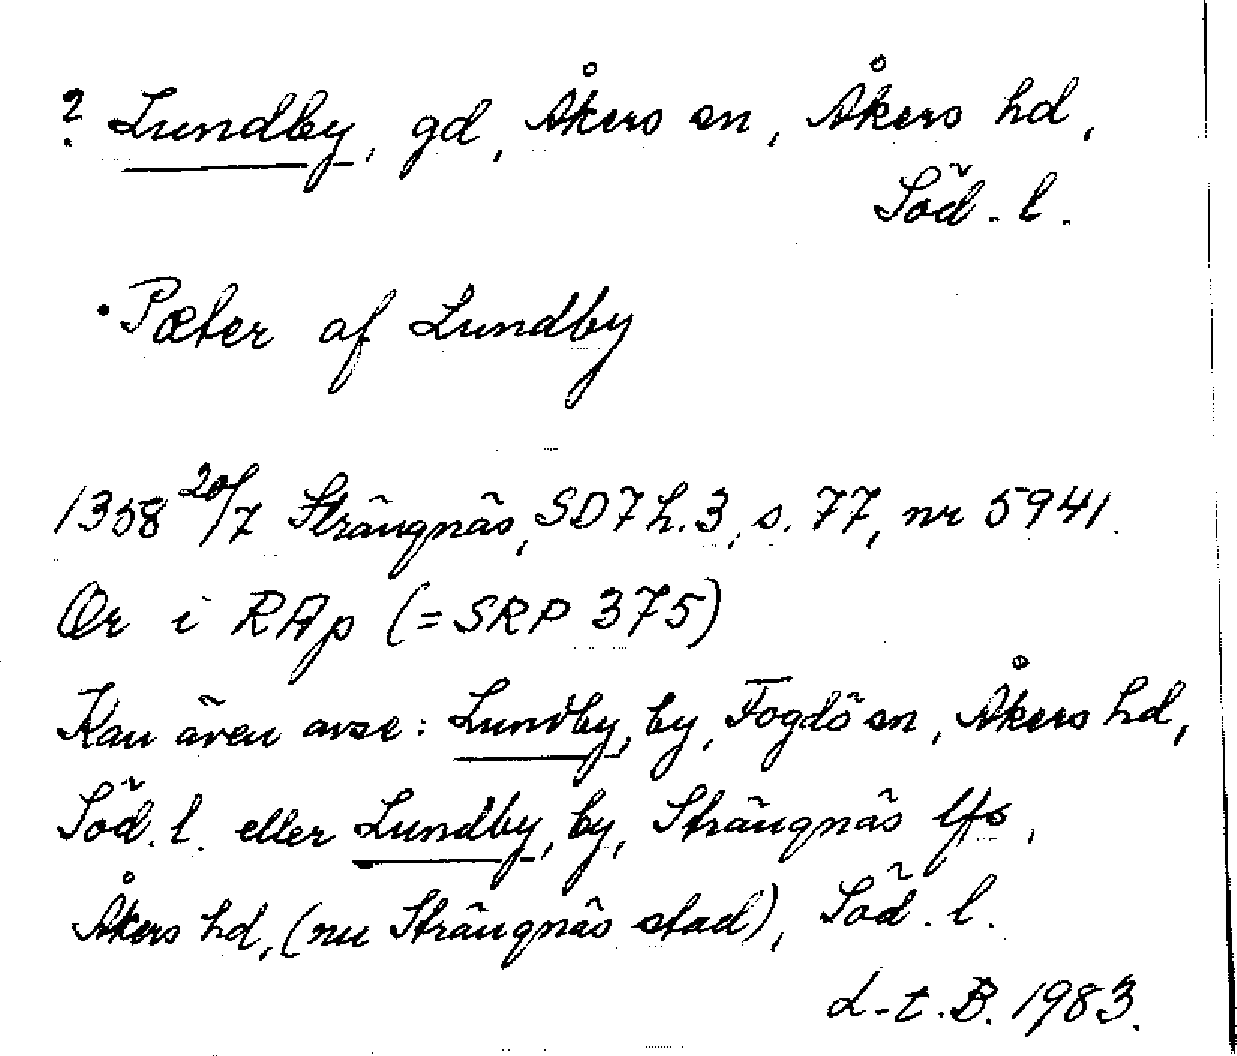 ? Lundby, gd, Åkers sn, Åkers hd,
Söd. l.
· Pæter af Lundby
1358 20/7 Strängnäs, SD7 h.3, s. 77, nr 5941.
Or i RAp (=SRP 375)
Kan även avse: Lundby, by, Fogdö sn, Åkers hd,
Söd. l. eller Lundby, by, Strängnäs lfs,
Åkers hd, (nu Strängnäs stad), Söd. l.
L-t. B. 1983.